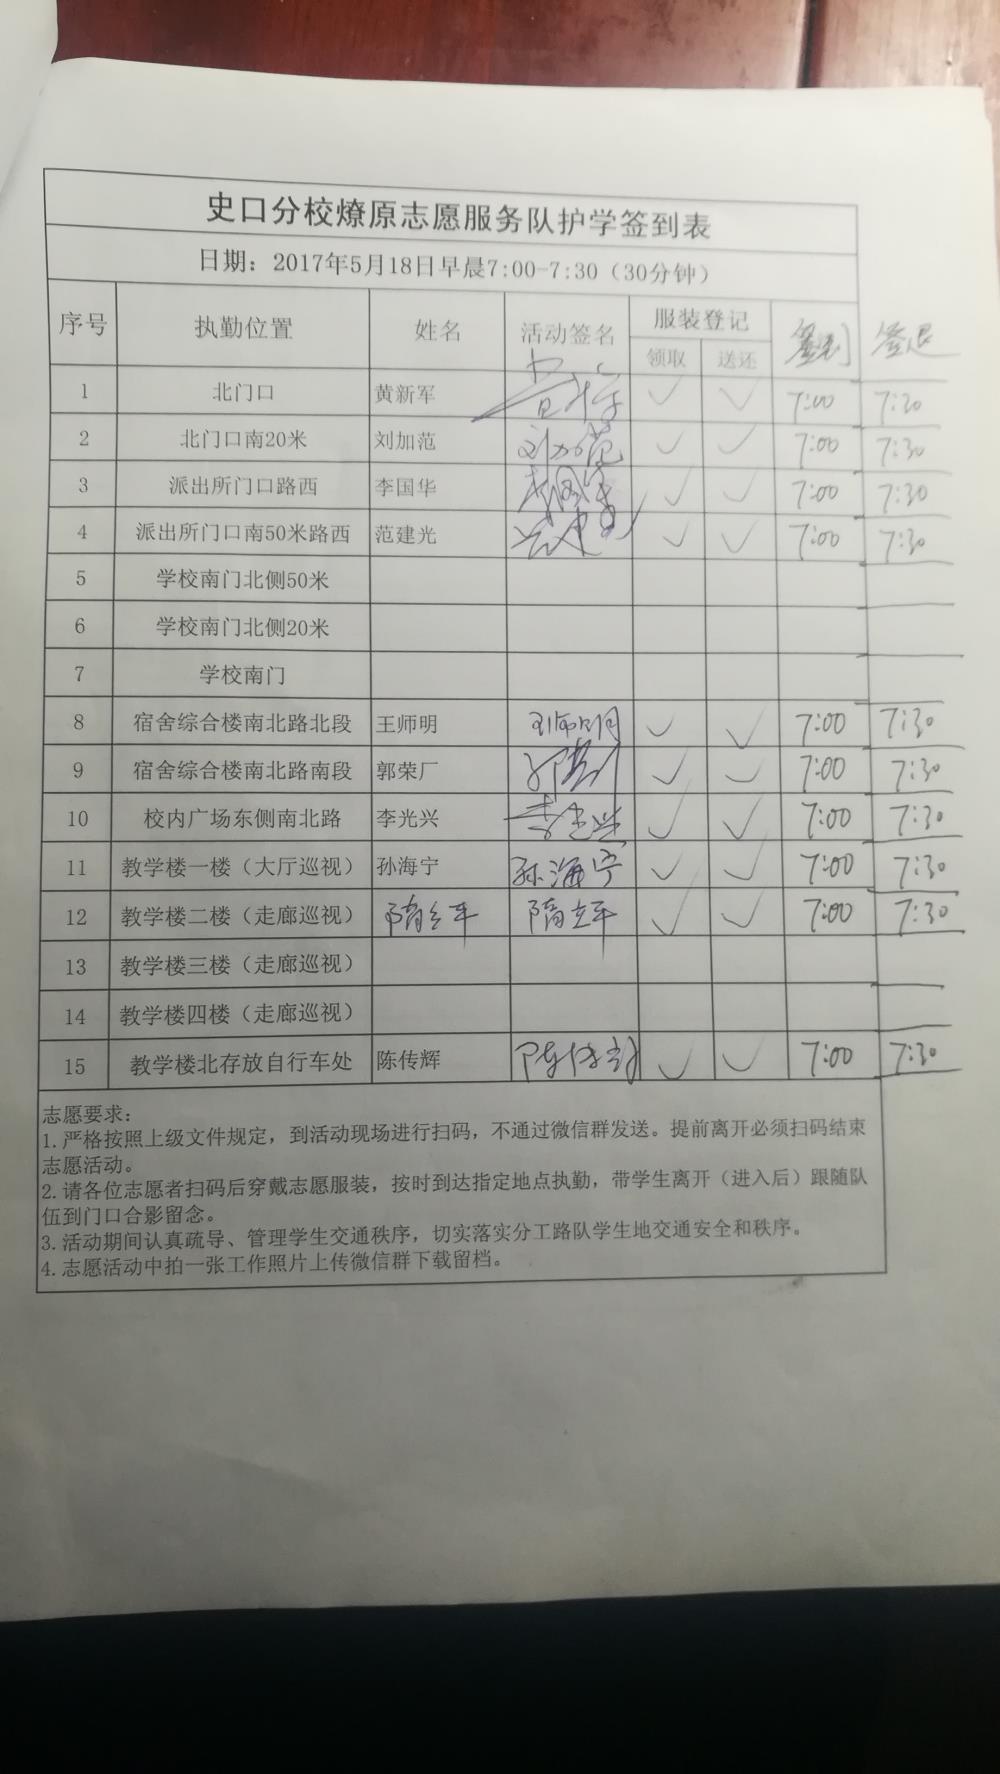 史口分校燎原志愿服务队护学签到表
日期：2017年5月18日早晨7:00-7:30（30分钟）
序号 执勤位置 姓名 活动签名 服装登记 签到 签退
领取 送还
1 北门口 黄新军 ✓ ✓ 7:00 7:30
2 北门口南20米 刘加范 刘加范 ✓ ✓ 7:00 7:30
3 派出所门口路西 李国华 李国华 ✓ ✓ 7:00 7:30
4 派出所门口南50米路西 范建光 ✓ ✓ 7:00 7:30
5 学校南门北侧50米
6 学校南门北侧20米
7 学校南门
8 宿舍综合楼南北路北段 王师明 王师明 ✓ ✓ 7:00 7:30
9 宿舍综合楼南北路南段 郭荣厂 ✓ ✓ 7:00 7:30
10 校内广场东侧南北路 李光兴 李光兴 ✓ ✓ 7:00 7:30
11 教学楼一楼（大厅巡视） 孙海宁 孙海宁 ✓ ✓ 7:00 7:30
12 教学楼二楼（走廊巡视） 隋立军 隋立军 ✓ ✓ 7:00 7:30
13 教学楼三楼（走廊巡视）
14 教学楼四楼（走廊巡视）
15 教学楼北存放自行车处 陈传辉 陈传辉 ✓ ✓ 7:00 7:30
志愿要求：
1.严格按照上级文件规定，到活动现场进行扫码，不通过微信群发送。提前离开必须扫码结束
志愿活动。
2.请各位志愿者扫码后穿戴志愿服装，按时到达指定地点执勤，带学生离开（进入后）跟随队
伍到门口合影留念。
3.活动期间认真疏导、管理学生交通秩序，切实落实分工路队学生地交通安全和秩序。
4.志愿活动中拍一张工作照片上传微信群下载留档。